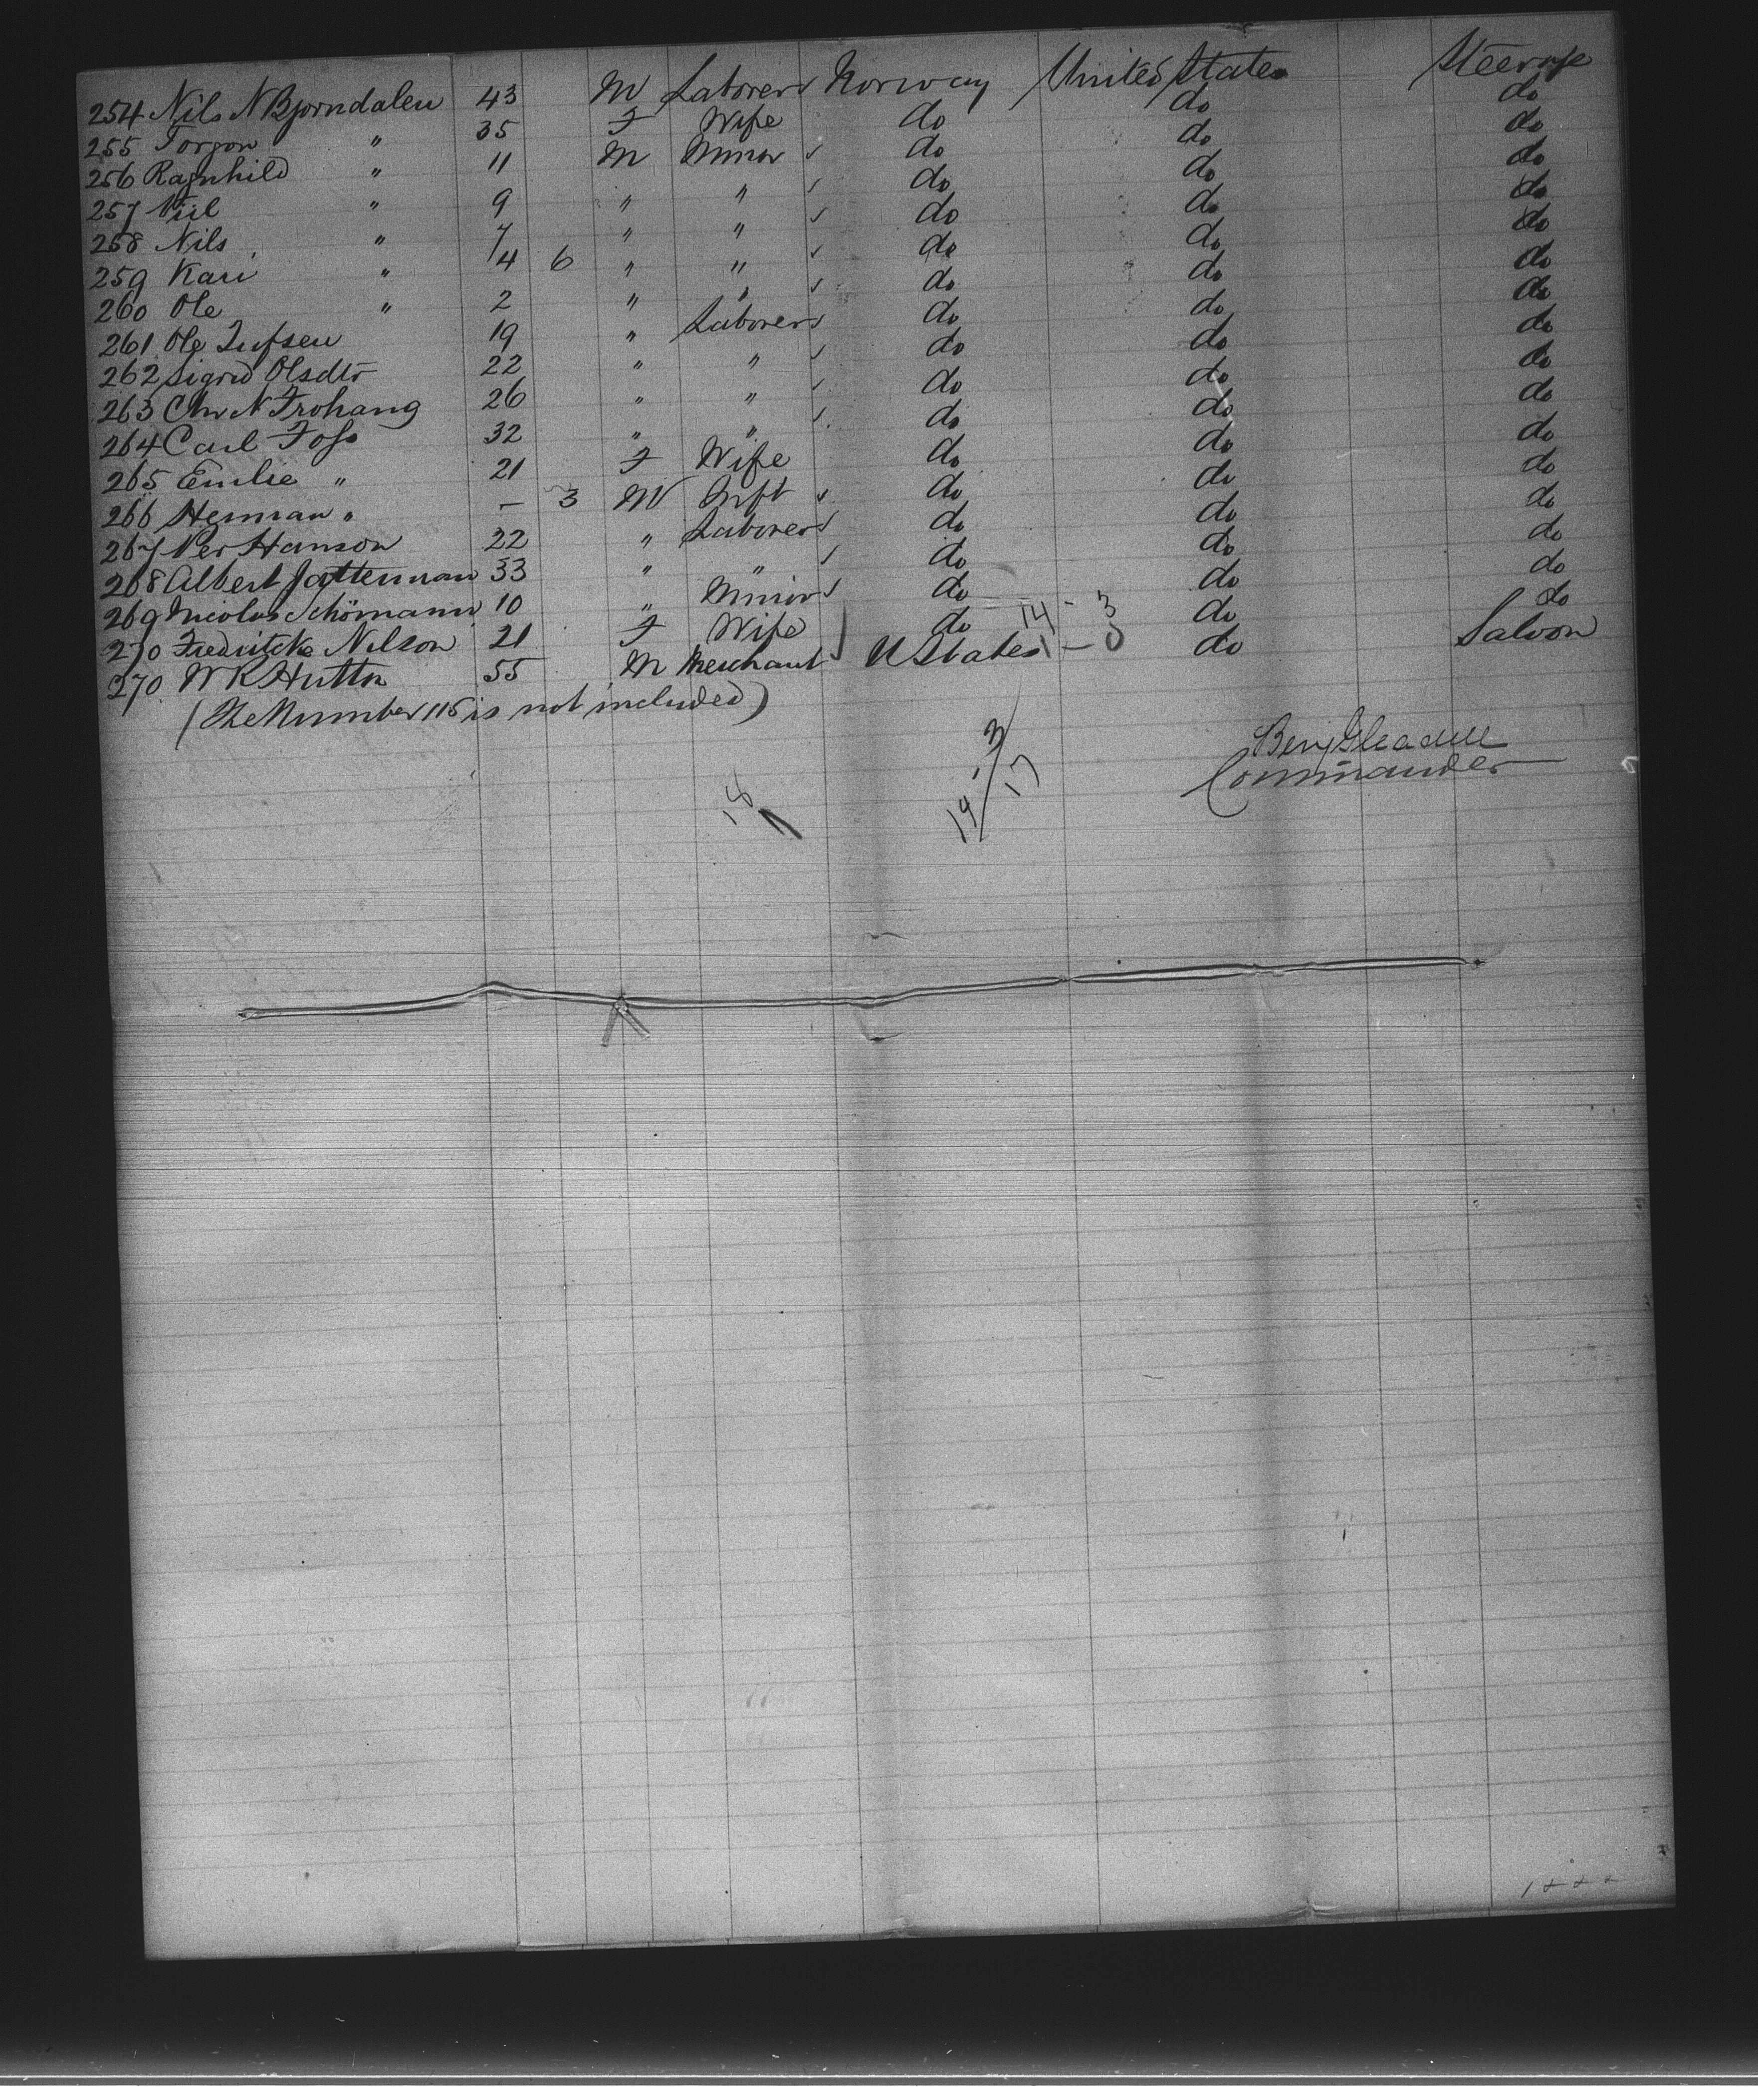 254 Nils N Bjorndalen 43 M Laborer Norway United States Steerage
255 Torgon " 35 F Wife do do do
256 Ragnhild " 11 M Minor do do do
257 " 9 " " do do do
258 Nils " 7 " " do do do
259 Kari " 4 6 " " do do do
260 Ole " 2 " " do do do
261 Ole 19 " Laborer do do do
262 Sigrid Olsdtr 22 " " do do do
263 Chr N Frohang 26 " " do do do
264 Carl Foss 32 " " do do do
265 Emilie " 21 F Wife do do do
266 Herman " - 3 M Inft do do do
267 Per Hanson 22 " Laborer do do do
268 Albert 33 " " do do do
269 Nicolas Schömann 10 " Minor do do do
270 Nilson 21 F Wife do 14 - 3 do do
270 W R Hutton 55 M Merchant U States 1 - 0 do Saloon
(The Number 115 is not included)
Commander